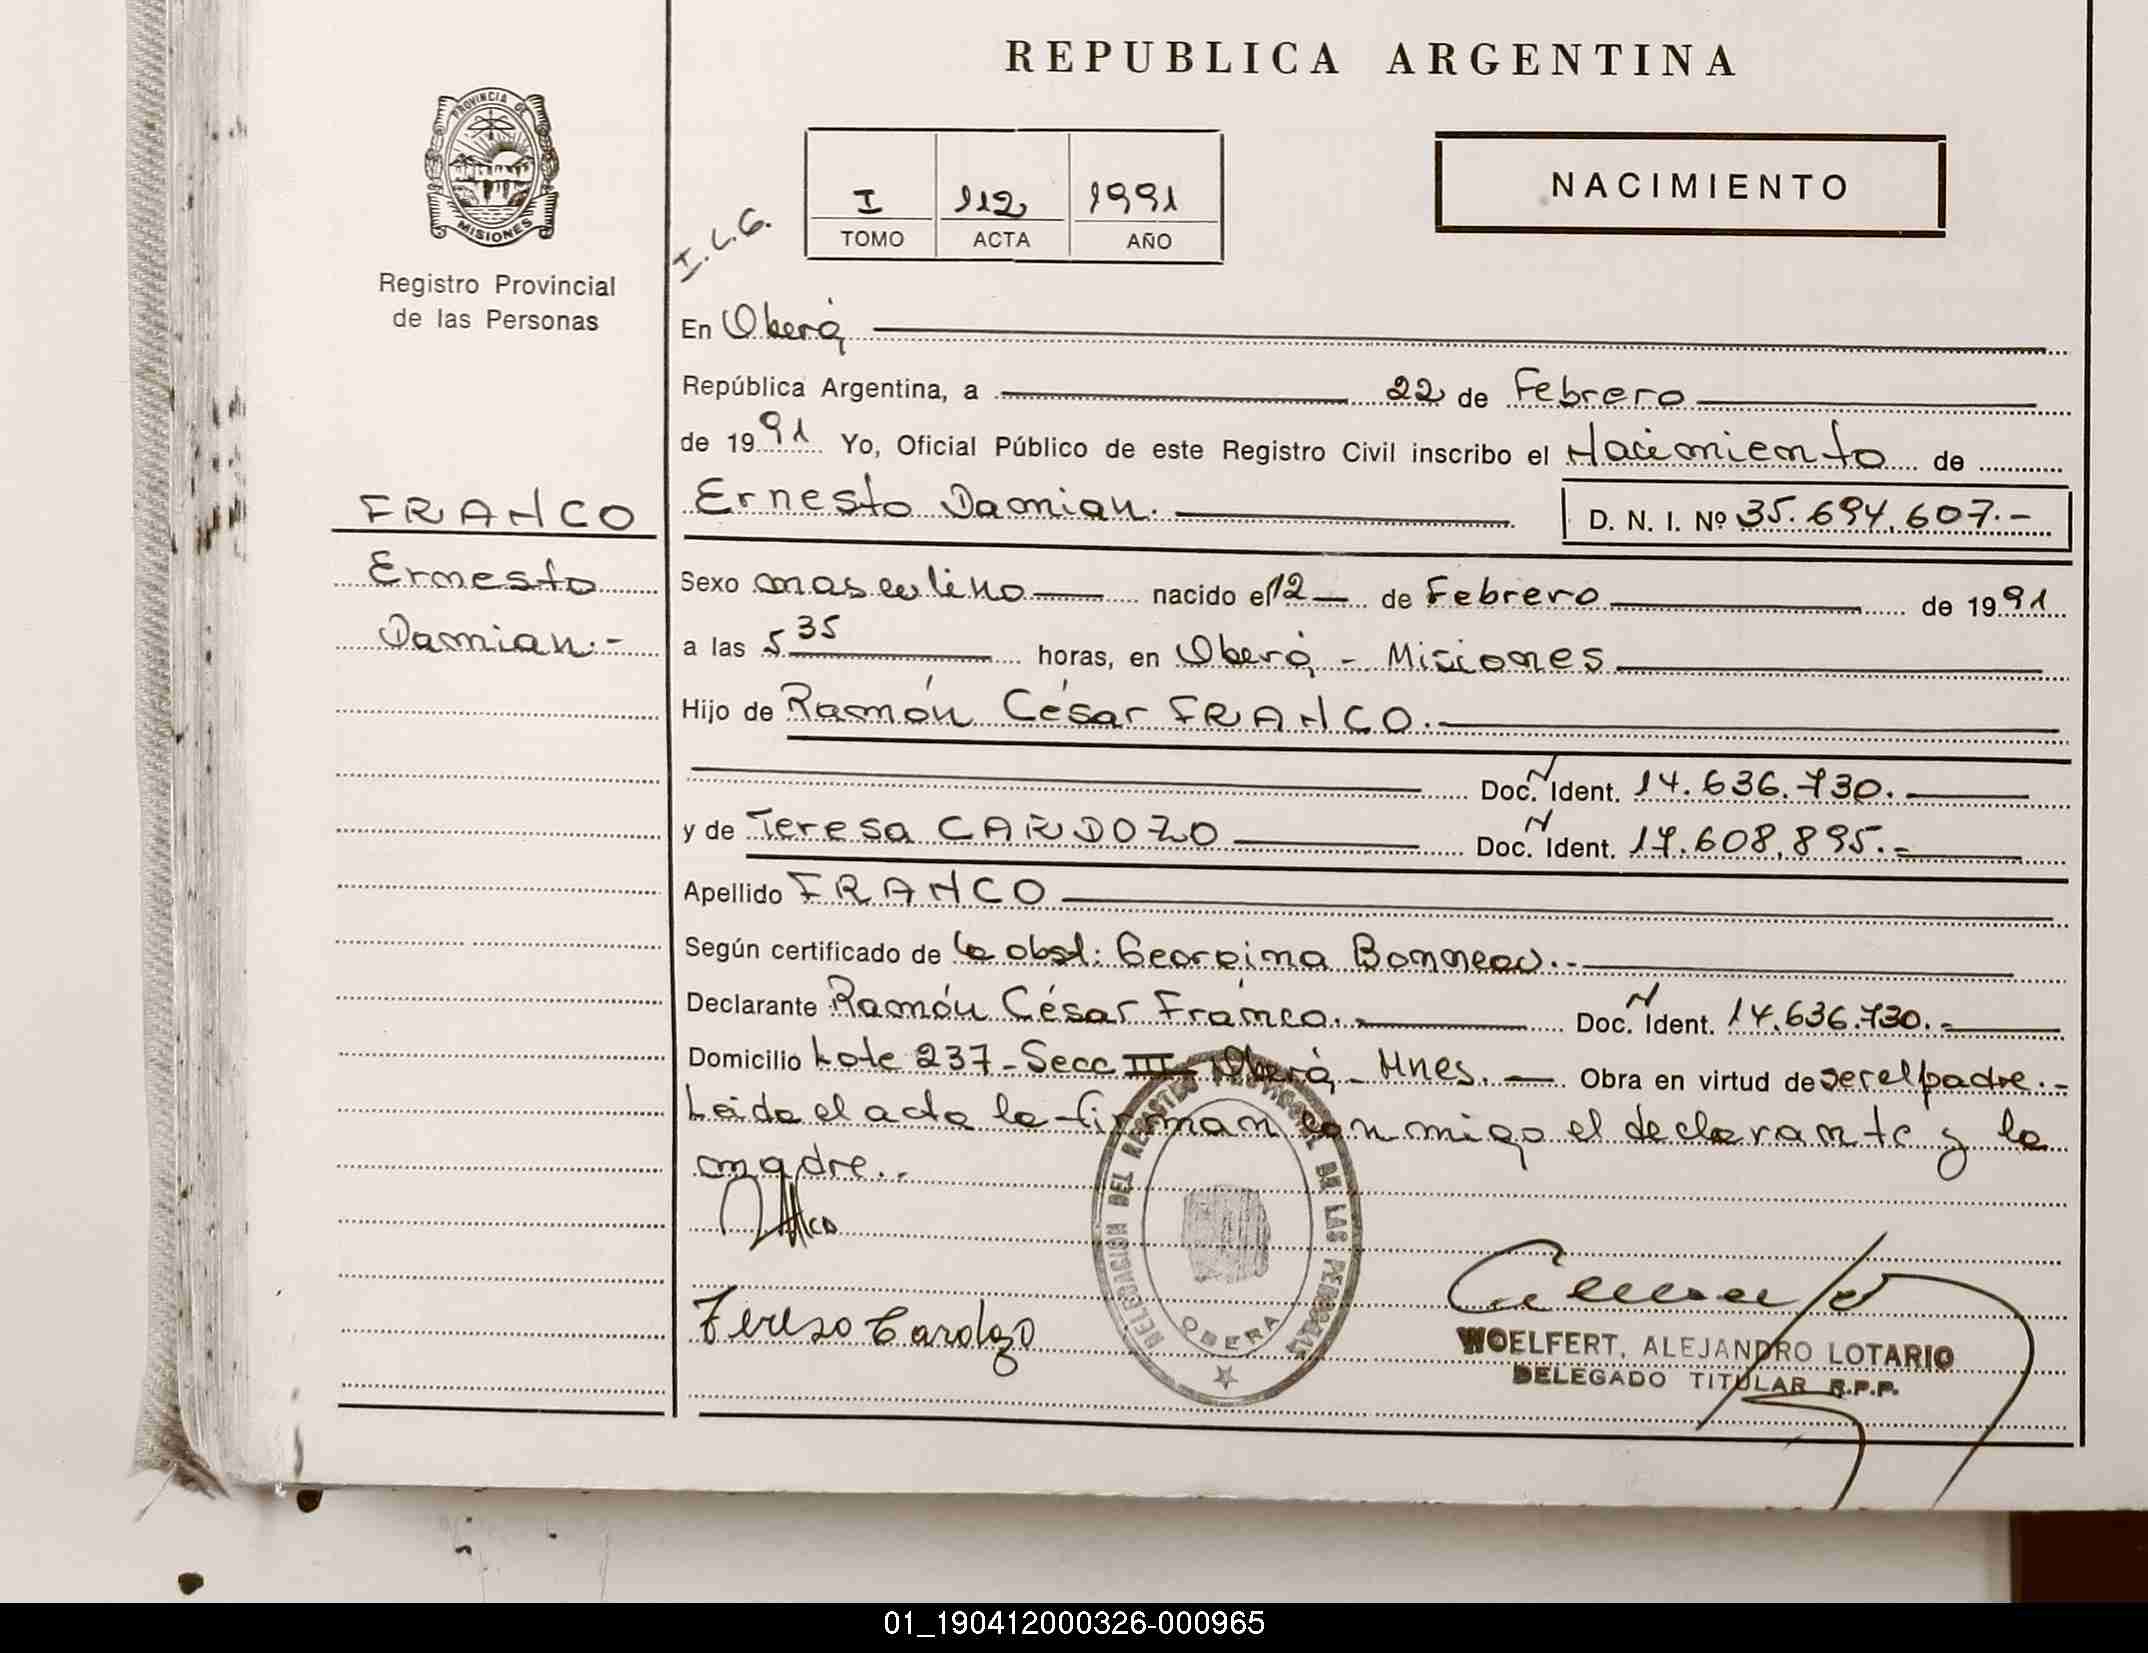 REPUBLICA ARGENTINA
PROVINCIA DE
MISIONES
Registro Provincial
de las Personas
I 112 1991
TOMO ACTA AÑO
NACIMIENTO
I.L.G.
En Oberá
República Argentina, a 22 de Febrero
de 1991 Yo, Oficial Público de este Registro Civil inscribo el Nacimiento de
FRANCO
Ernesto
Damian.-
Ernesto Damian. D. N. I. Nº 35.694.607.-
Sexo masculino nacido el 12 de Febrero de 1991
a las 5 35 horas, en Oberá - Misiones
Hijo de Ramón César FRANCO.
Doc. N Ident. 14.636.730.
y de Teresa CARDOZO Doc. N Ident. 17.608.895.-
Apellido FRANCO
Según certificado de la obst: Georgina Bonneau.-
Declarante Ramón César Franco.- Doc. N Ident. 14.636.730.-
Domicilio Lote 237-Secc III Oberá - Mnes. - Obra en virtud de ser el padre.-
Leida el acta la firman conmigo el declarante y la
madre..
DELEGACION DEL REGISTRO PROVINCIAL DE LAS PERSONAS
OBERA
Tereso Cardozo
WOELFERT, ALEJANDRO LOTARIO
DELEGADO TITULAR R.P.P.
01_190412000326-000965